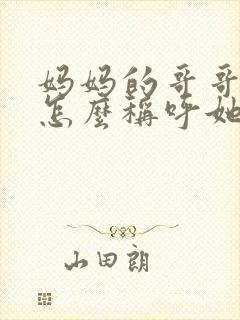 妈妈的哥哥
怎麼稱呼她
山田朗